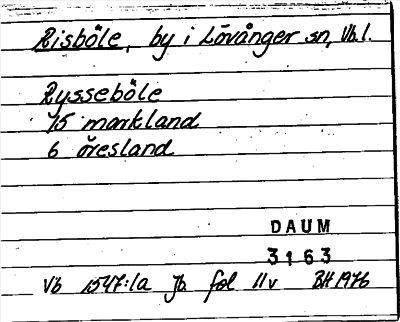 Risböle, by i Lövånger sn, Vb.l.
Rysseböle
15 markland
6 öresland
DAUM
3163
Vb 1547:1a Jb fol 11v BH 1976